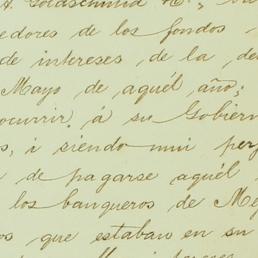 A. Goldschmid
edores de los fondos
de intereses, de la de
Mayo, de aquél, año;
ocurrir, á su Gobier
s, i siendo mui per
de pagarse aquél
los banqueros de Me
os que estaban en su